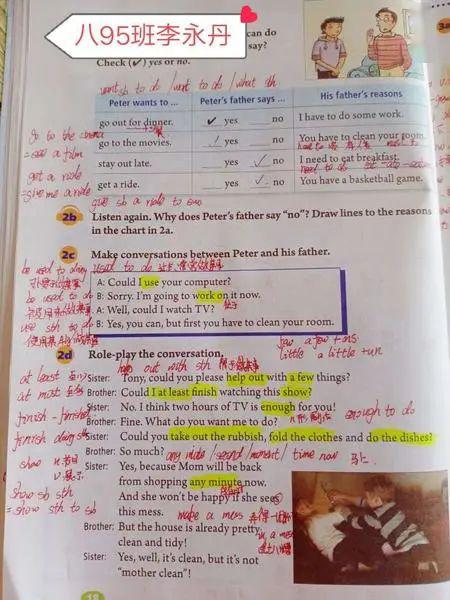 八95班李永丹
can do
say?
Check (✓) yes or no.
want sb to do / want to do / want sth
Peter wants to ... Peter's father says ... His father's reasons
go out for dinner. ✓ yes no I have to do some work.
go to the movies. ✓ yes no You have to clean your room.
stay out late. yes ✓ no I need to eat breakfast.
get a ride. yes ✓ no You have a basketball game.
go to the cinema
= see a film
get a ride
= give me a ride
give sb a ride to
2b Listen again. Why does Peter's father say "no"? Draw lines to the reasons
in the chart in 2a.
2c Make conversations between Peter and his father.
be used to doing
used to do
A: Could I use your computer?
B: Sorry. I'm going to work on it now.
A: Well, could I watch TV?
B: Yes, you can, but first you have to clean your room.
be used to do
use sth to do
few a few + ns
little a little + un
2d Role-play the conversation.
out with sth
Sister: Tony, could you please help out with a few things?
Brother: Could I at least finish watching this show?
Sister: No. I think two hours of TV is enough for you!
Brother: Fine. What do you want me to do?
enough to do
Sister: Could you take out the rubbish, fold the clothes and do the dishes?
Brother: So much?
any minute / second / moment / time now
Sister: Yes, because Mom will be back
from shopping any minute now.
And she won't be happy if she sees
this mess.
make a mess
Brother: But the house is already pretty
clean and tidy!
in a mess
Sister: Yes, well, it's clean, but it's not
"mother clean"!
at least 至少
at most 至多
finish - finished
finish doing sth
show
show sb sth
= show sth to sb
18